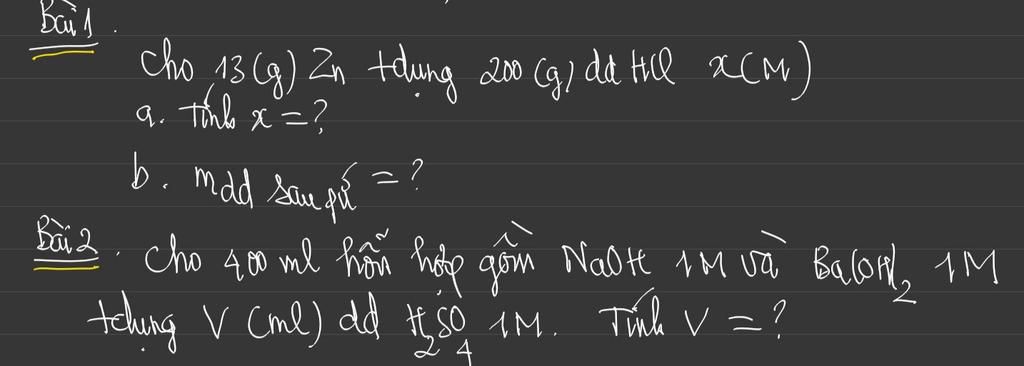 Bài 1.
Cho 13(g) Zn tdụng 200(g) dd HCl x(M)
a. Tính x = ?
b. mdd sau pứ = ?
Bài 2. Cho 400 ml hỗn hợp gồm NaOH 1M và Ba(OH)2 1M
tdụng V (ml) dd H2SO4 1M. Tính V = ?